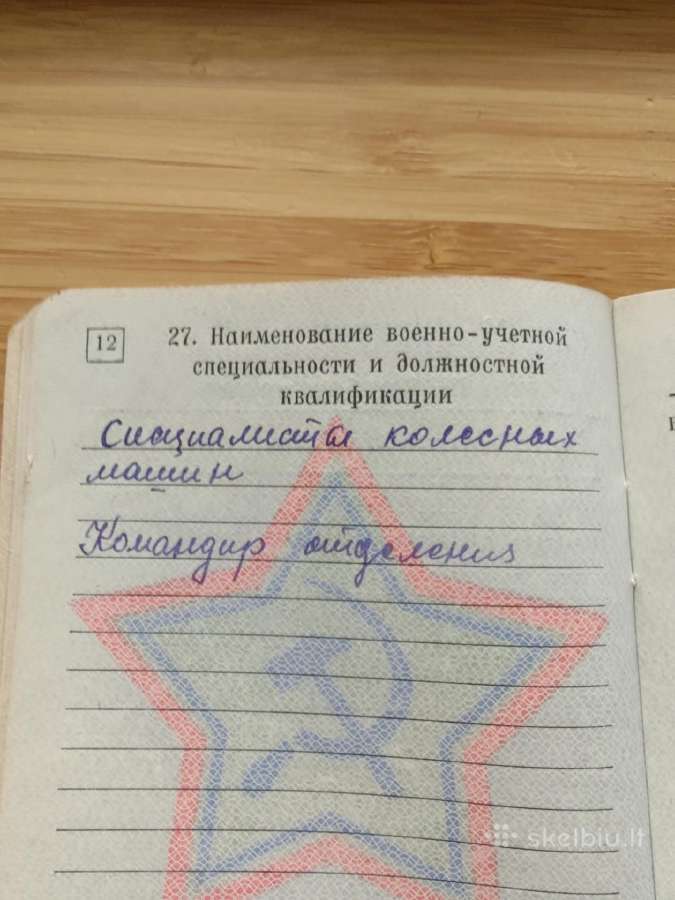 12
27. Наименование военно-учетной
специальности и должностной
квалификации
Специалисты колесных
машин
Командир отделения
skelbiu.lt